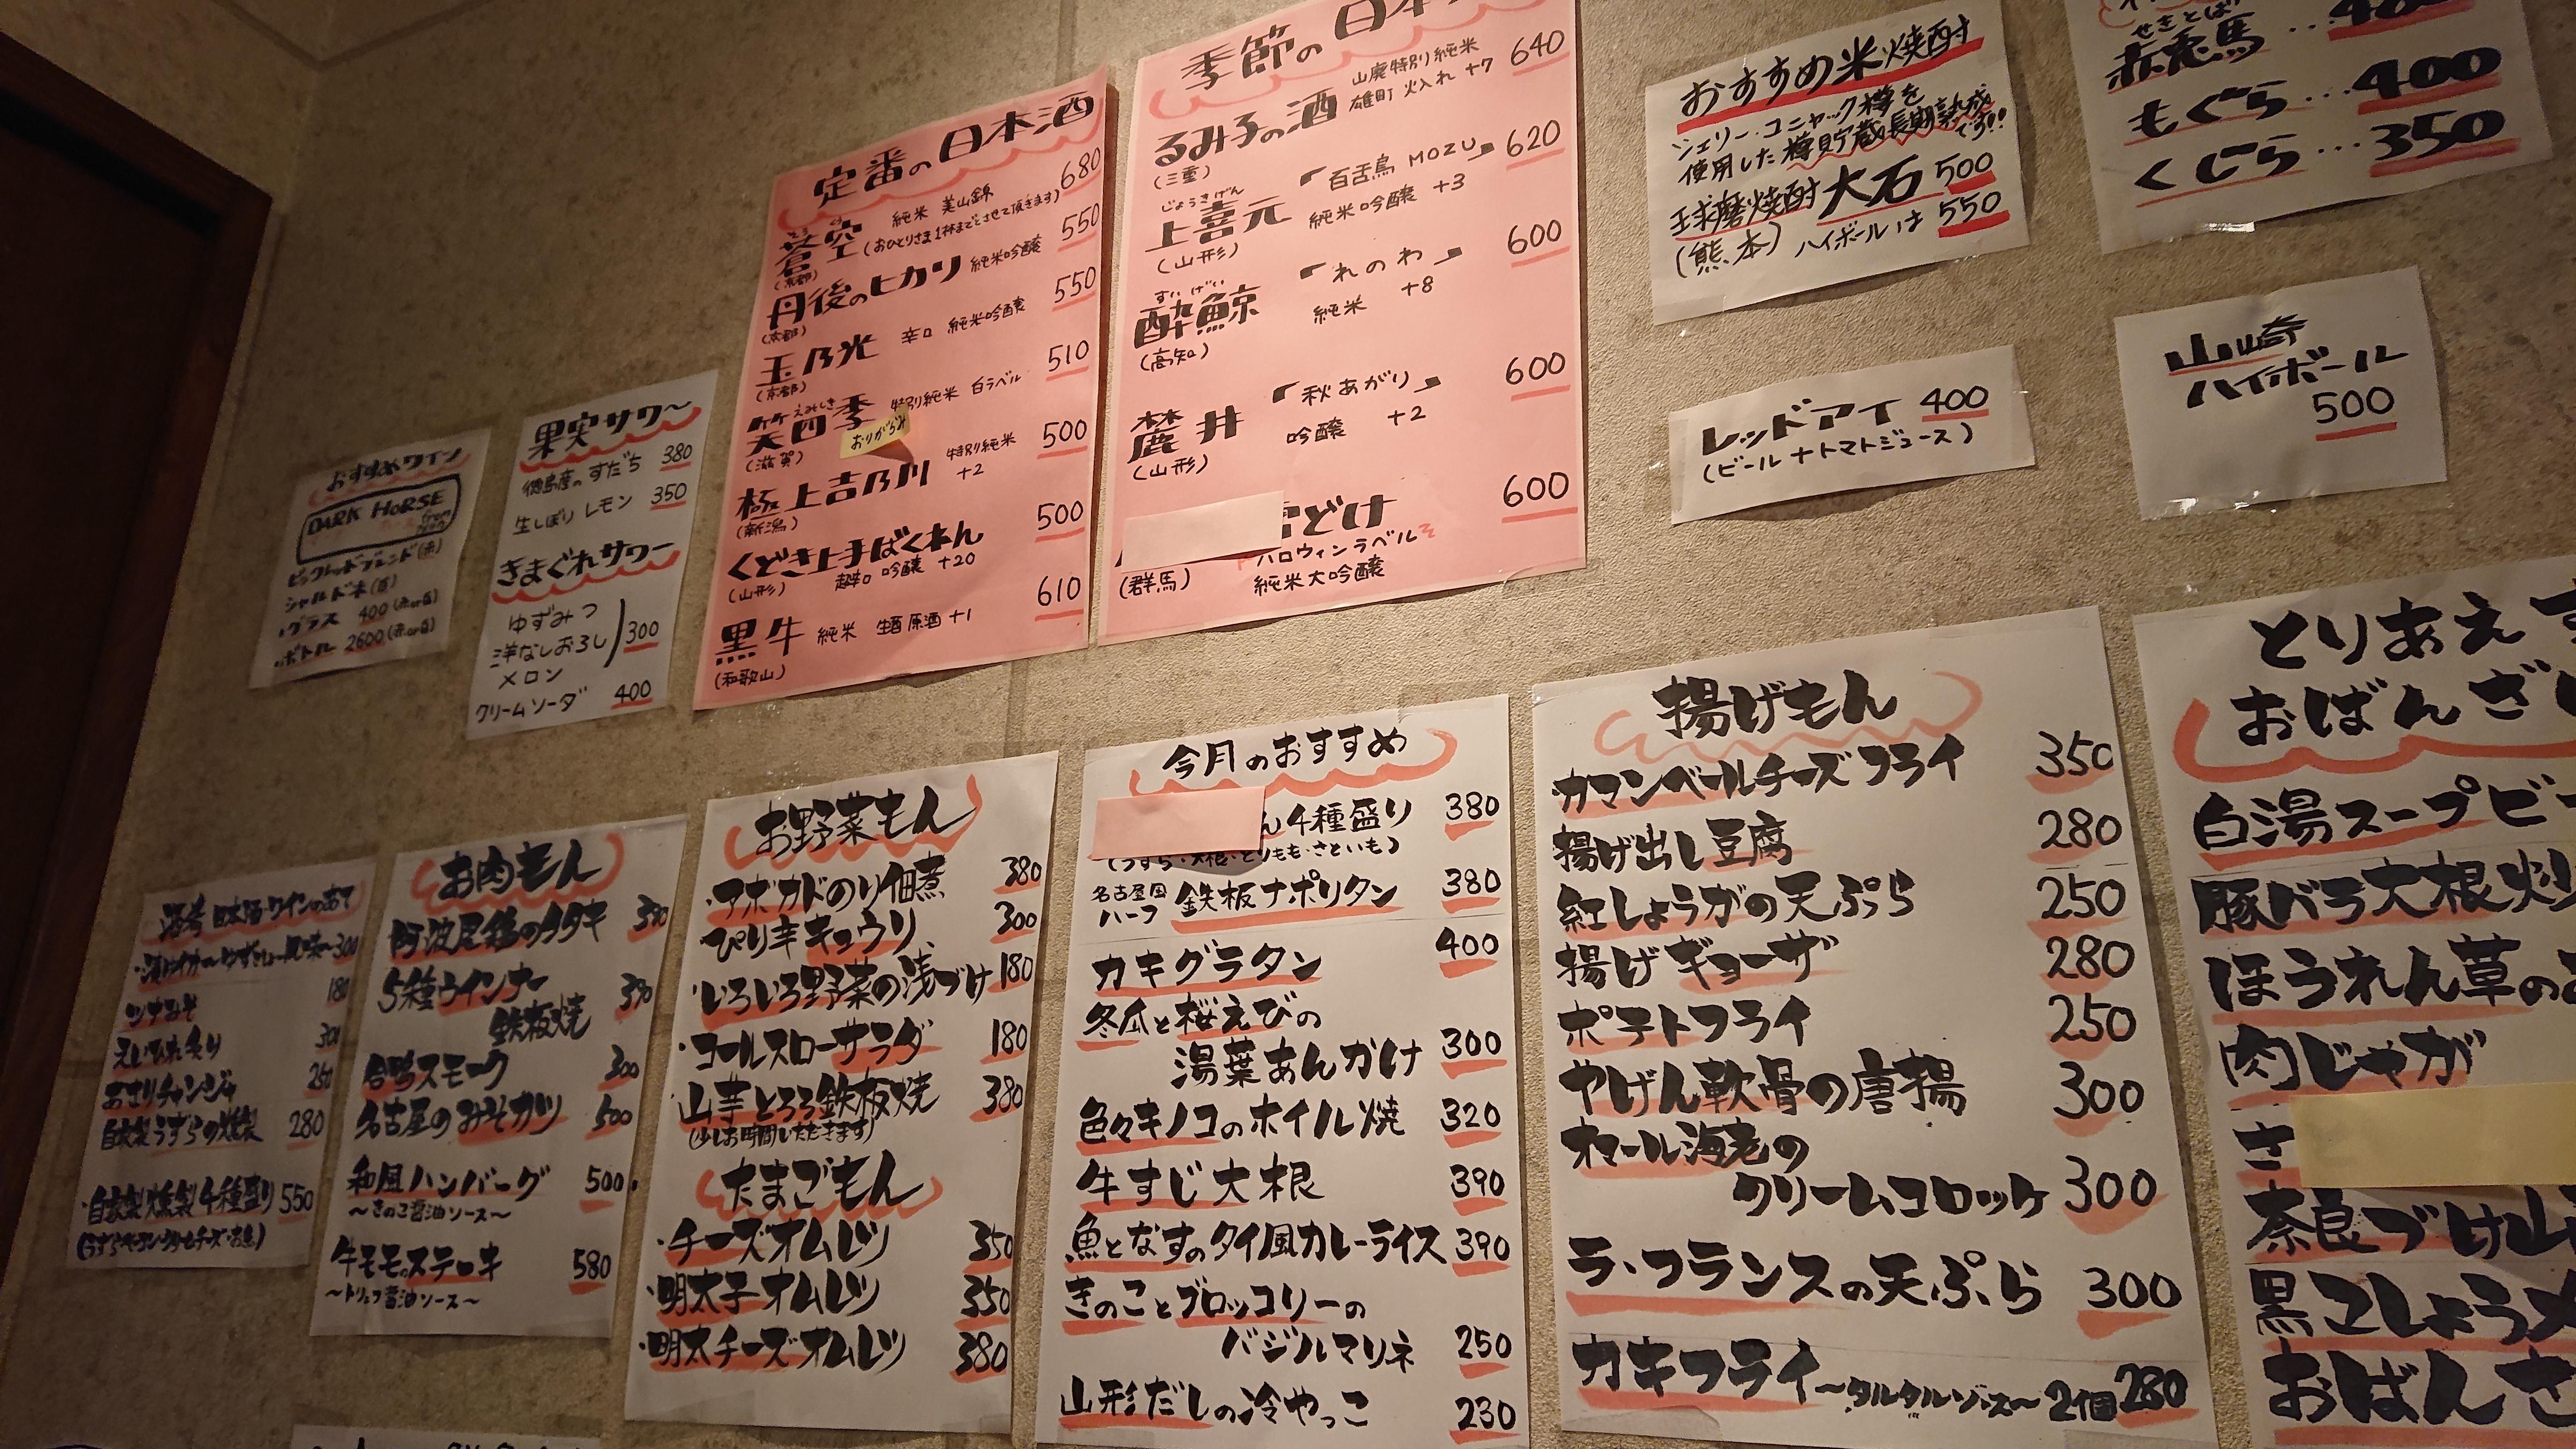 おすすめワイン
DARK HORSE
ビッグレッドブレンド(赤)
シャルドネ(白)
・グラス 400(赤or白)
・ボトル 2600(赤or白)
果実サワ〜
徳島産のすだち 380
生しぼりレモン 350
きまぐれサワー
ゆずみつ
洋なしおろし 300
メロン
クリームソーダ 400
定番の日本酒
蒼空 純米 美山錦 680
(京都) (おひとりさま1杯までとさせて頂きます)
丹後のヒカリ 純米吟醸 550
(京都)
玉乃光 辛口 純米吟醸 550
(京都)
えみしき
笑四季 特別純米 白ラベル 510
(滋賀) おりがらみ
極上吉乃川 特別純米 +2 500
(新潟)
くどき上手ばくれん 500
(山形) 超辛口 吟醸 +20
黒牛 純米 生酒原酒 +1 610
(和歌山)
季節の日本
るみ子の酒 山廃特別純米 640
(三重) 雄町 火入れ +7
じょうきげん
上喜元 「百舌鳥 MOZU」 620
(山形) 純米吟醸 +3
すいげい
酔鯨 「れのわ」 600
(高知) 純米 +8
麓井 「秋あがり」 600
(山形) 吟醸 +2
どけ 600
ハロウィンラベル
(群馬) 純米大吟醸
おすすめ米焼酎
シェリー・コニャック樽を
使用した樽貯蔵長期熟成
です!!
球磨焼酎 大石 500
(熊本) ハイボールは 550
せきとば
赤兎馬
もぐら…400
くじら…350
レッドアイ 400
(ビール+トマトジュース)
山崎
ハイボール
500
酒肴 日本酒・ワインのあて
300
ツナみそ 180
えいひれ炙り
あさりチャンジャ 250
自家製うずらの燻製 280
・自家製燻製4種盛り 550
お肉もん
阿波尾鶏のタタキ
5種ウインナー
鉄板焼
合鴨スモーク 300
名古屋のみそカツ 500
和風ハンバーグ 500
〜きのこ醤油ソース〜
牛モモのステーキ 580
〜トリュフ醤油ソース〜
お野菜もん
・アボカドのり佃煮 380
・ぴり辛キュウリ 300
・いろいろ野菜の浅づけ 180
・コールスローサラダ 180
・山芋とろろ鉄板焼 380
(少しお時間いただきます)
たまごもん
・チーズオムレツ 350
・明太子オムレツ 350
・明太チーズオムレツ 380
今月のおすすめ
ん4種盛り 380
(うずら・大根・とりもも・さといも)
名古屋風
ハーフ 鉄板ナポリタン 380
カキグラタン 400
冬瓜と桜えびの
湯葉あんかけ 300
色々キノコのホイル焼 320
牛すじ大根 390
魚となすのタイ風カレーライス 390
きのことブロッコリーの
バジルマリネ 250
山形だしの冷やっこ 230
揚げもん
カマンベールチーズフライ 350
揚げ出し豆腐 280
紅しょうがの天ぷら 250
揚げギョーザ 280
ポテトフライ 250
やげん軟骨の唐揚 300
オマール海老の
クリームコロッケ 300
ラ・フランスの天ぷら 300
カキフライ〜タルタルソース〜2個 280
とりあえず
おばんざい
白湯スープビー
豚バラ大根炒
ほうれん草のお
肉じゃが
さ
奈良づけ山
黒こしょう
おばんざ